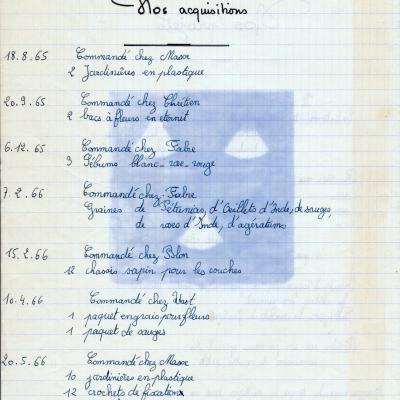 Nos acquisitions
18.8.65 Commandé chez Masse
2 Jardinières en plastique
20.9.65 Commandé chez Chrétien
2 bacs à fleurs en eternit
6.12.65 Commandé chez Fabre
3 blanc - rose - rouge
7.2.66 Commandé chez Fabre
Graines de Pétunias, d'Oeillets d'Inde, de sauges,
de roses d'Inde, d'agératums
15.2.66 Commandé chez Blon
12 chassis sapin pour les couches
10.4.66 Commandé chez Vast
1 paquet engrais pour fleurs
1 paquet de sauges
20.5.66 Commandé chez Masse
10 jardinières en plastique
12 crochets de fixations